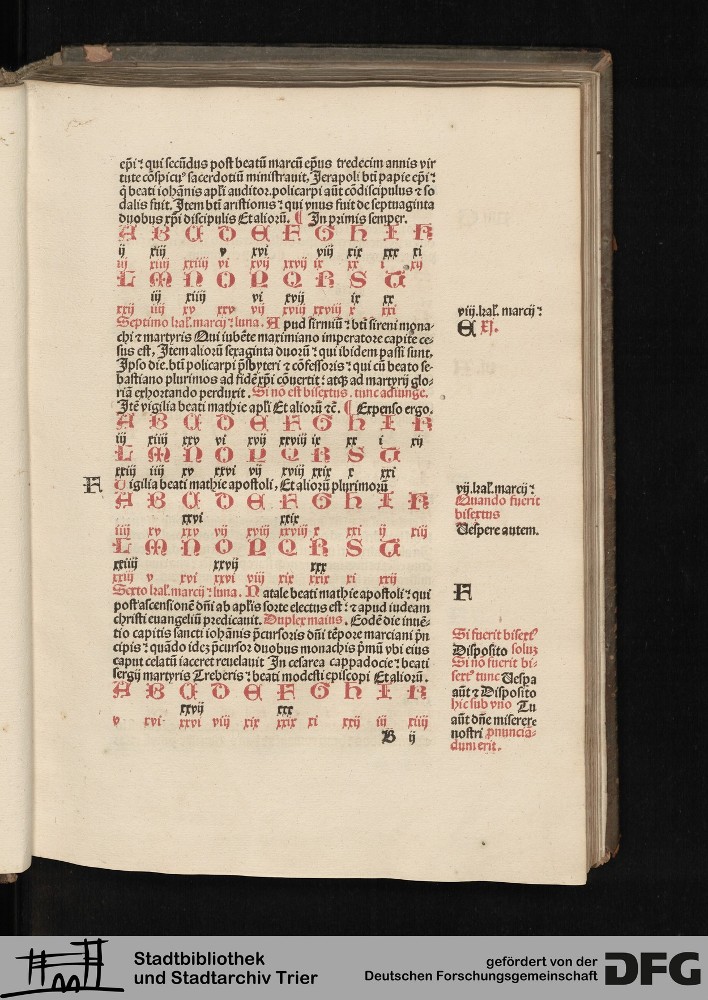 ep̄i ⁊ qui secūdus post beatū marcū ep̄us tredecim annis vir
tute cōspicuꝰ sacerdotiū ministrauit, Jerapoli btī papie ep̄i ⁊
q̄ beati iohānis apl̄i auditor. policarpi aūt cōdiscipulus ⁊ so
dalis fuit. Jtem btī aristionis ⁊ qui vnus fuit de septuaginta
duobus xp̄i discipulis Et aliorū. ¶ Jn primis semper.
A B C D E F G H I K
ij xiij v xvi viij xix xxx xi
iij xiiij xxiiij vi xvij xxvij ix xx i xij
L M N O P Q R S T
iij xiiij vi xvij ix xx
xxij iiij xv xxv vij xviij xxviij x xxi
Septimo kal̄. marcij ⁊ luna. Apud sirmiū ⁊ btī sireni mona-
chi ⁊ martyris Qui iubēte maximiano imperatore capite ce-
sus est, Jtem aliorū sexaginta duorū ⁊ qui ibidem passi sunt.
Jpso die. btī policarpi p̄sbyteri ⁊ cōfessoris ⁊ qui cū beato se-
bastiano plurimos ad fidē xp̄i cōuertit ⁊ atqꝫ ad martyrij glo-
riā exhortando perduxit. Si nō est bisextus. tunc adiunge.
Jtē vigilia beati mathie apl̄i Et aliorū ⁊c̄. ¶ Expenso ergo.
A B C D E F G H I K
iij xiiij xxv vi xvij xxviij ix xx i xij
L M N O P Q R S T
xxiij iiij xv xxvi vij xviij xxix x xxi
F
Vigilia beati mathie apostoli, Et aliorū plurimorū
A B C D E F G H I K
xxvi xxix
iiij xv xxv vij xviij xxviij x xxi ij xiij
L M N O P Q R S T
xxiiij xxvij xxx
xxiij v xvi xxvi viij xix xxix xi xxij
Sexto kal̄. marcij ⁊ luna. Natale beati mathie apostoli ⁊ qui
post ascensionē dn̄i ab apl̄is sorte electus est ⁊ ⁊ apud iudeam
christi euangeliū predicauit. Duplex maius. Eodē die inuē-
tio capitis sancti iohānis p̄cursoris dn̄i tēpore marciani p̄n
cipis ⁊ quādo idez p̄cursor duobus monachis p̄mū vbi eius
caput celatū iaceret reuelauit Jn cesarea cappadocie ⁊ beati
sergij martyris Treberis ⁊ beati modesti episcopi Et aliorū.
A B C D E F G H I K
xxvij xxx
v xvi xxvi viij xix xxix xi xxij iij xiiij
B ij
viij. kal̄. marcij ⁊
E XI.
vij. kal̄. marcij ⁊
Quando fuerit
bisextus
Vespere autem.
F
Si fuerit bisextꝰ
Disposito soluꝫ
Si nō fuerit bi-
sextꝰ tunc Vespa
aūt ⁊ Disposito
hic sub vno Tu
aūt dn̄e miserere
nostri pnunciā-
dum erit.
Stadtbibliothek
und Stadtarchiv Trier
gefördert von der
Deutschen Forschungsgemeinschaft
DFG